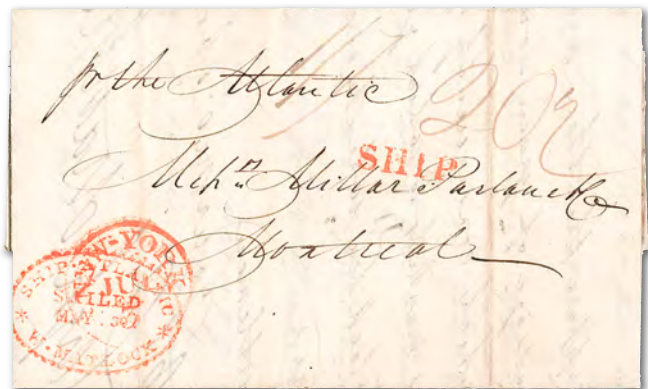 pr the Atlantic
20½
SHIP
Messrs Millar Parlane & Co
Montreal
NEW-YORK
JUL
SHIP ATLANTIC
SAILED
MAY
W. MATLOCK